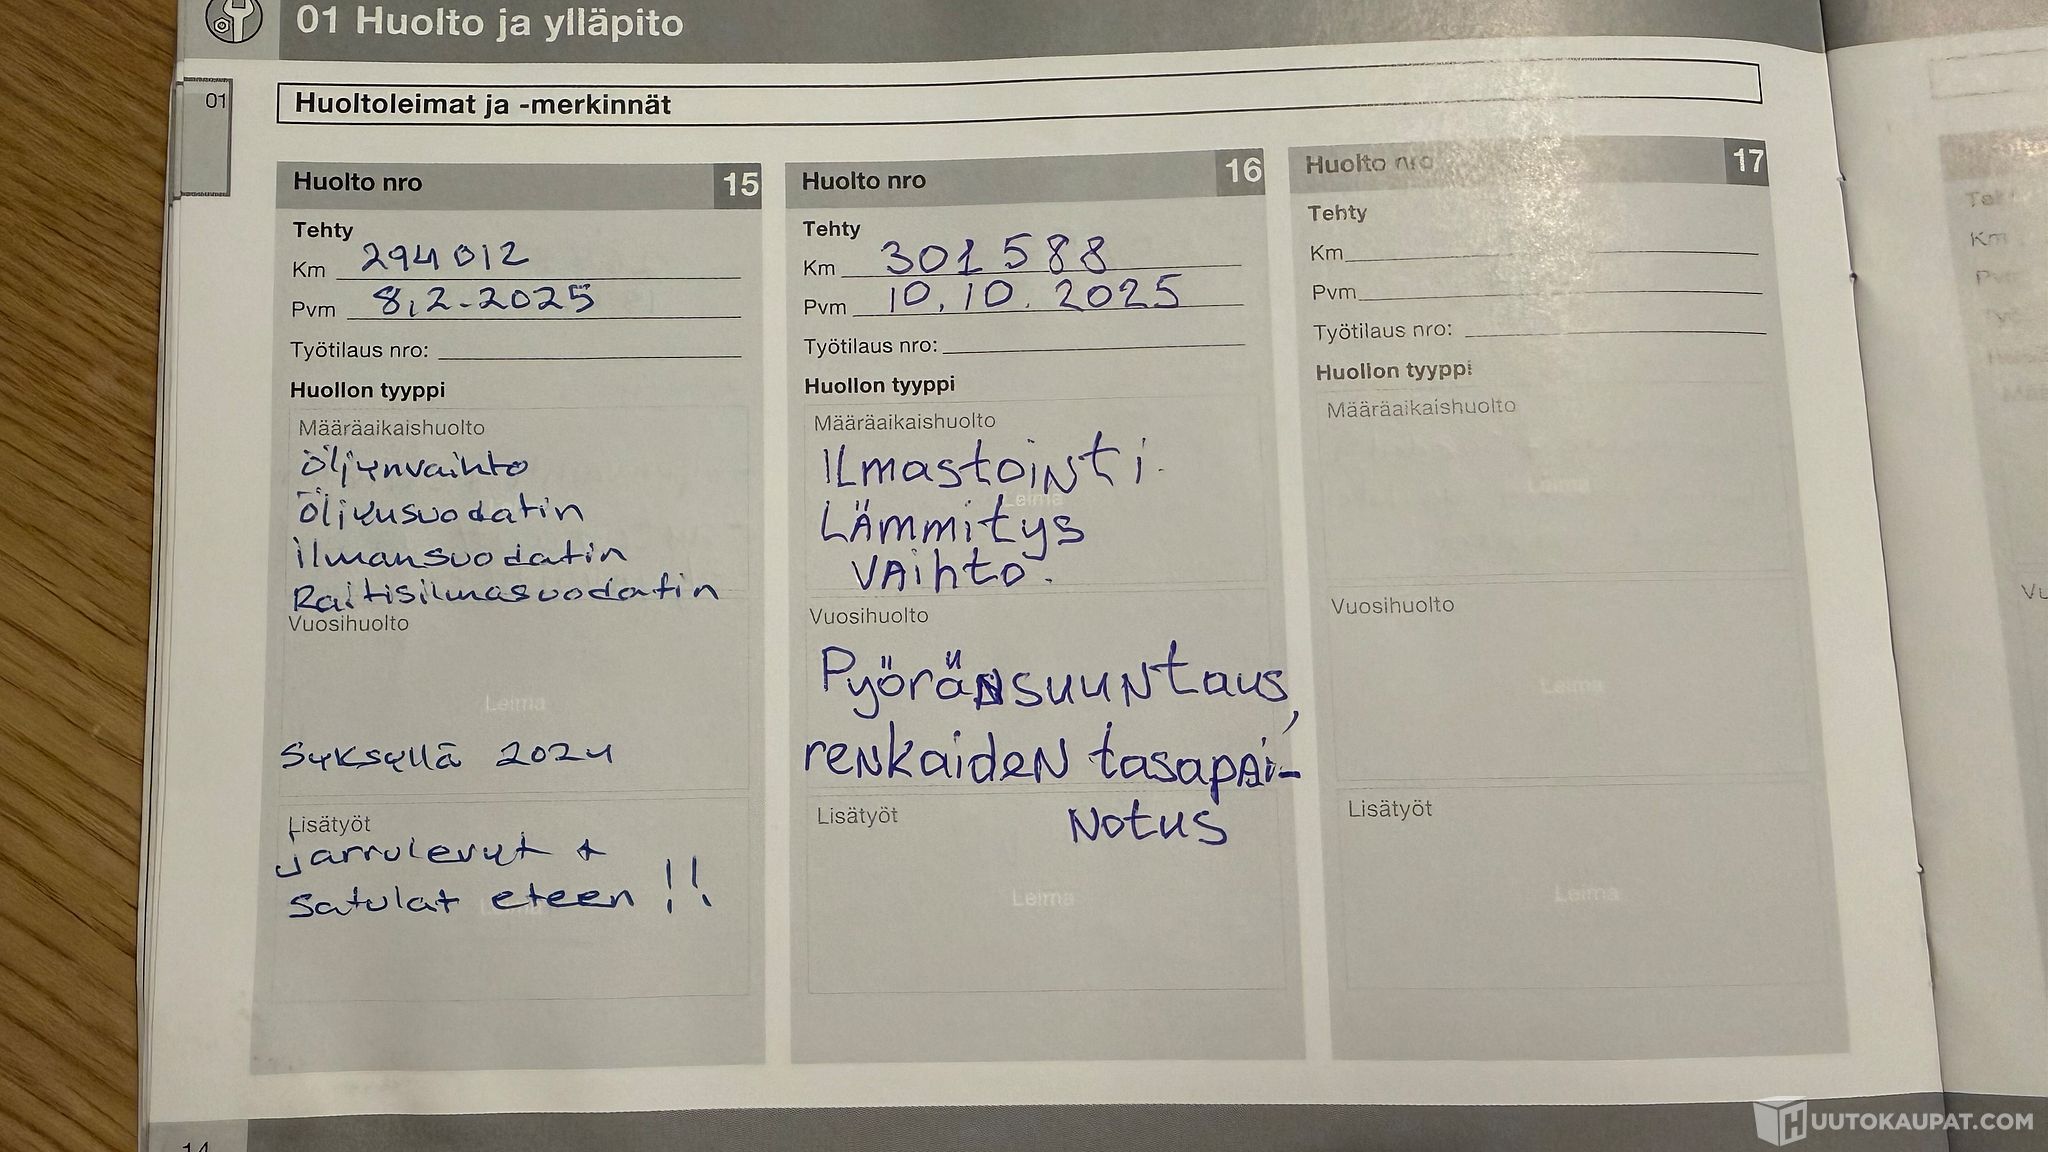 01 Huolto ja ylläpito
01
Huoltoleimat ja -merkinnät
Huolto nro 15
Tehty
Km 294012
Pvm 8.2.2025
Työtilaus nro:
Huollon tyyppi
Määräaikaishuolto
Öljynvaihto
Öljysuodatin
ilmansuodatin
Raitisilmasuodatin
Vuosihuolto
Leima
Syksyllä 2024
Lisätyöt
jarrulevyt +
satulat eteen !!
Leima
Huolto nro 16
Tehty
Km 301588
Pvm 10.10.2025
Työtilaus nro:
Huollon tyyppi
Määräaikaishuolto
ILmastointi
Leima
Lämmitys
vaihto.
Vuosihuolto
Pyöränsuuntaus,
renkaiden tasapai-
notus
Lisätyöt
Leima
Huolto nro 17
Tehty
Km
Pvm
Työtilaus nro:
Huollon tyyppi
Määräaikaishuolto
Leima
Vuosihuolto
Leima
Lisätyöt
Leima
Km
14
HUUTOKAUPAT.COM